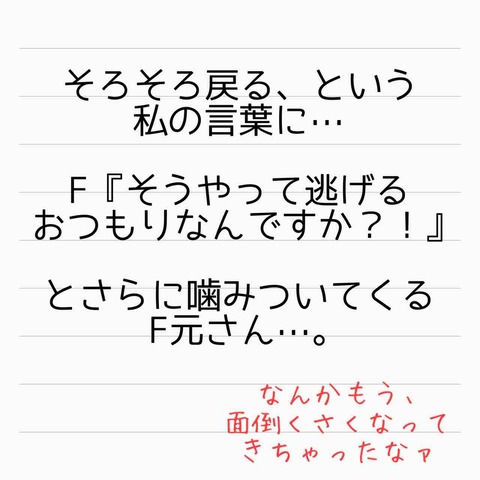 そろそろ戻る、という
私の言葉に…
F『そうやって逃げる
おつもりなんですか？！』
とさらに噛みついてくる
F元さん…。
なんかもう、
面倒くさくなって
きちゃったなァ